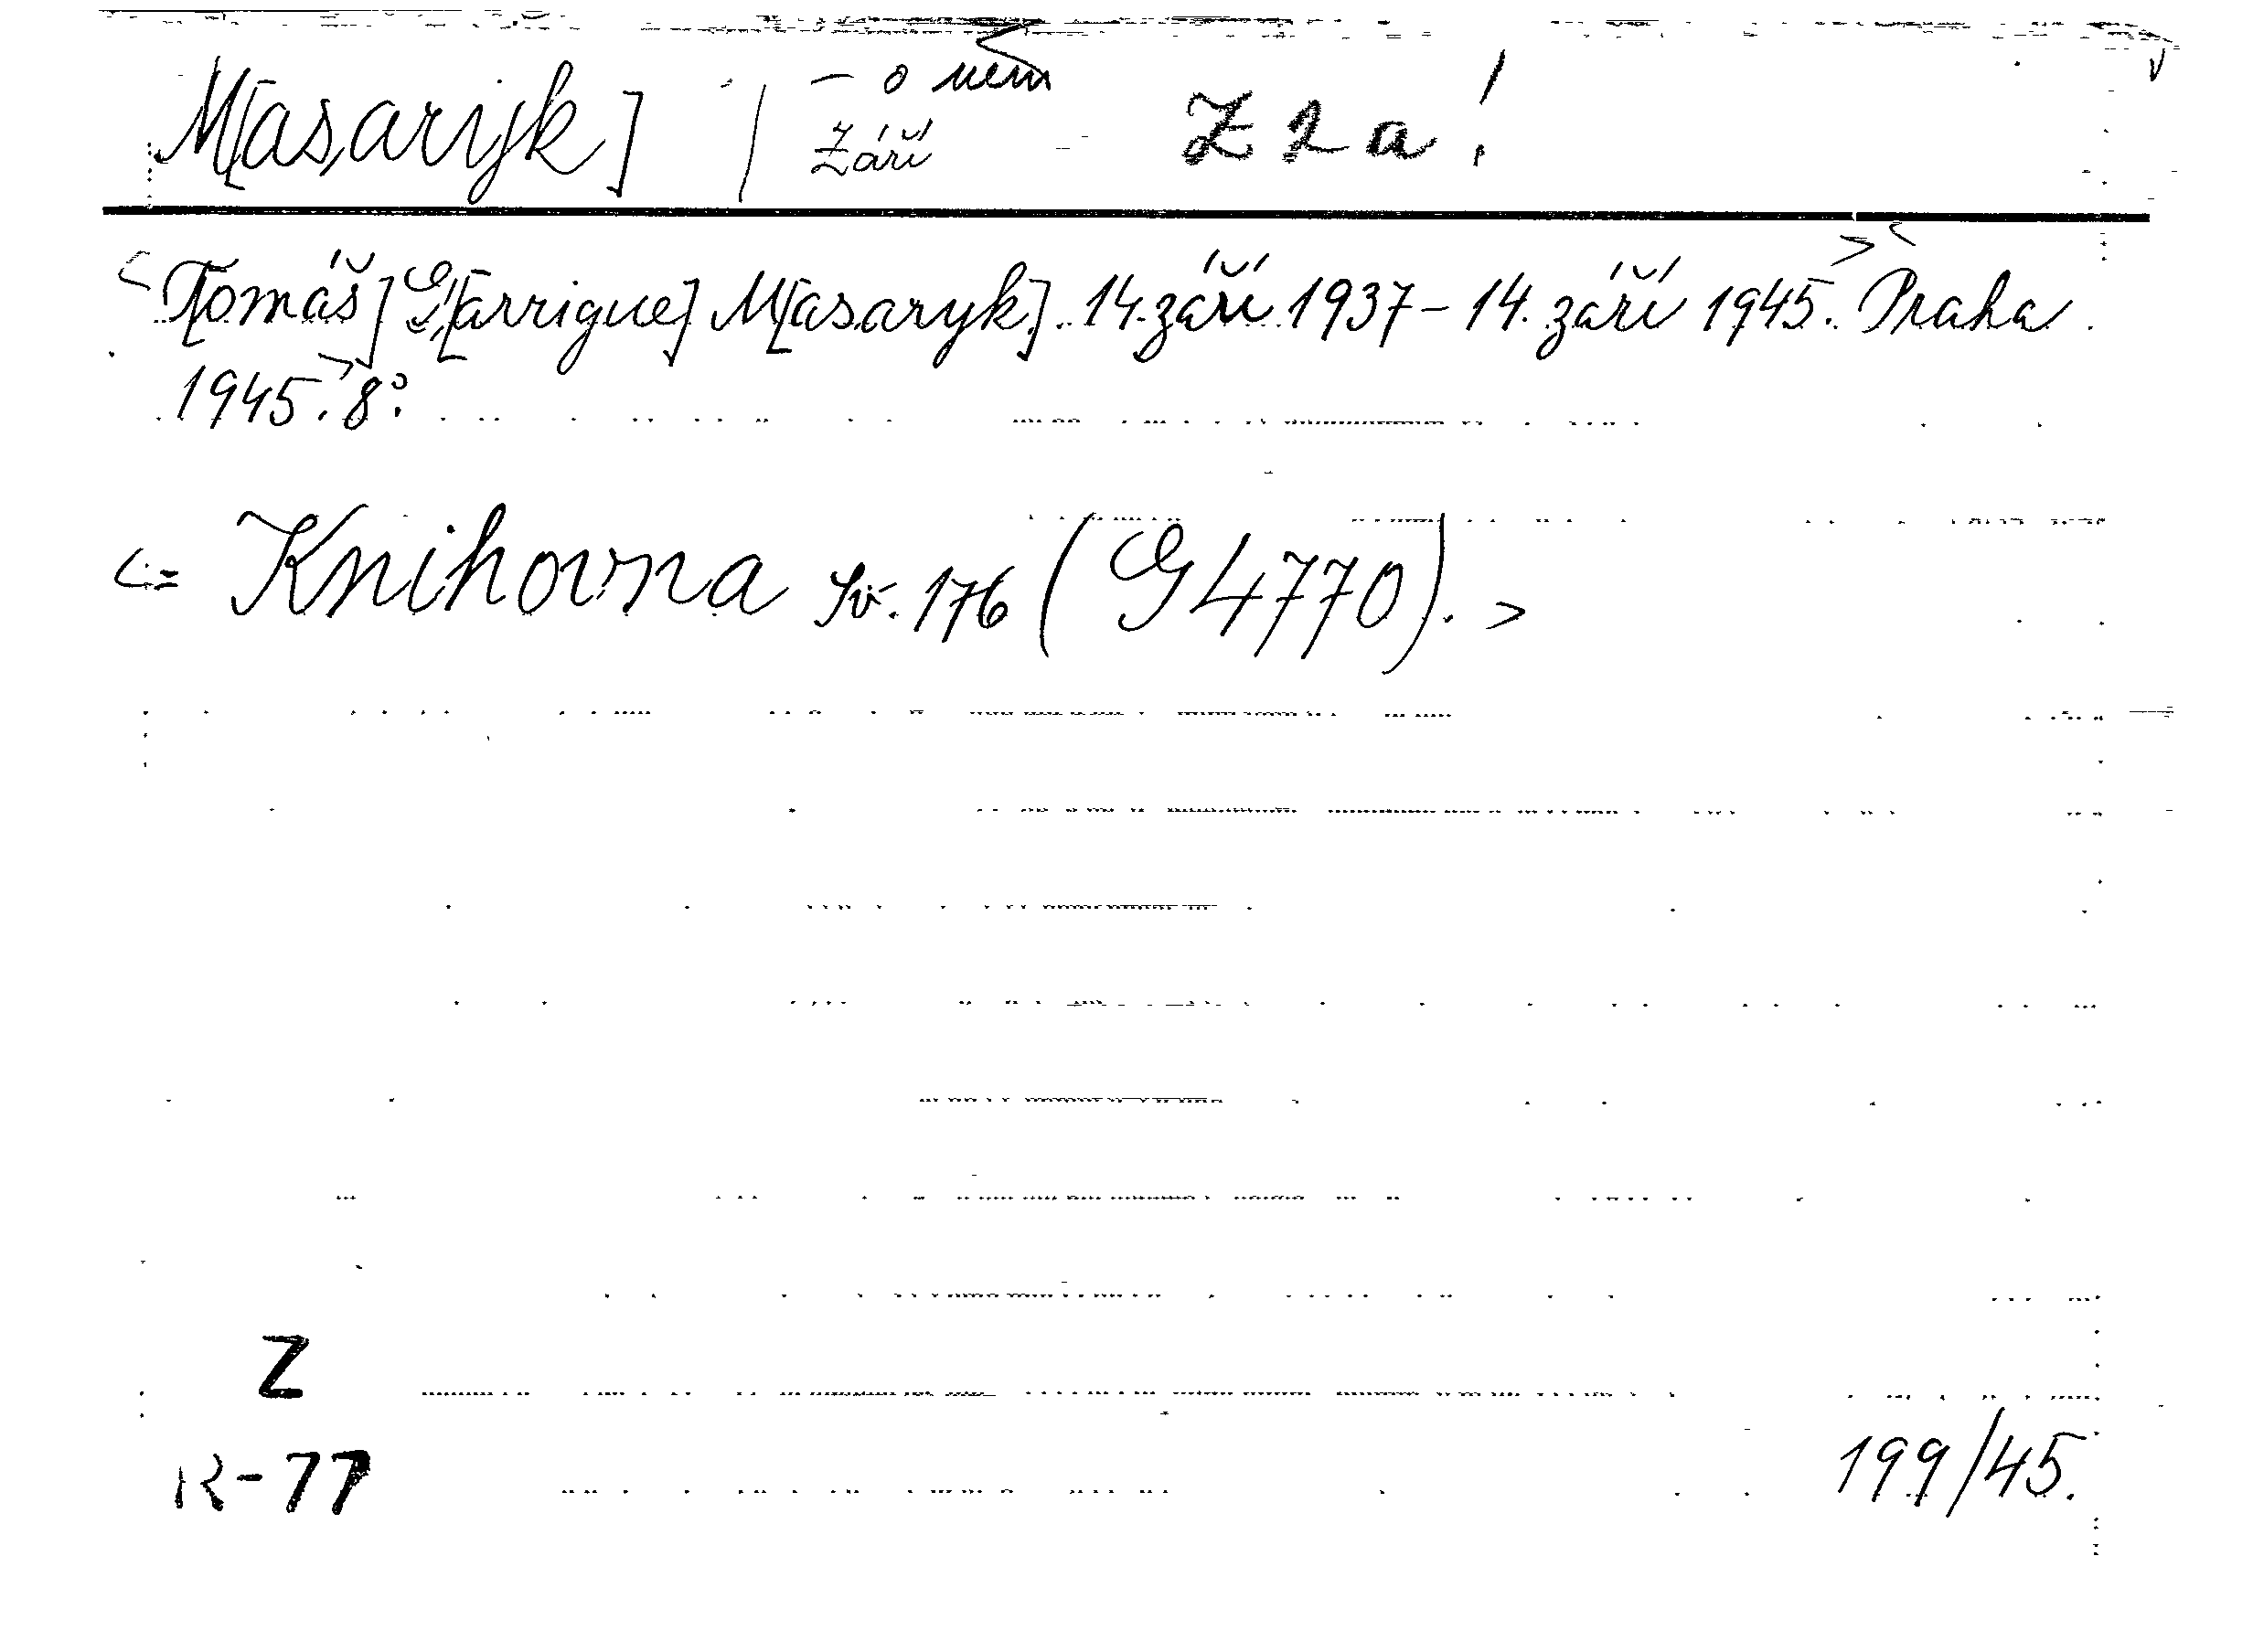 M[asaryk] / – o něm Z 2 a !
Září
<T[omáš] G[arrigue] M[asaryk]. 14. září 1937 – 14. září 1945.> <Praha
1945.> 8°.
<= Knihovna Sv. 176 (G 4770). >
Z
R-77 199/45.